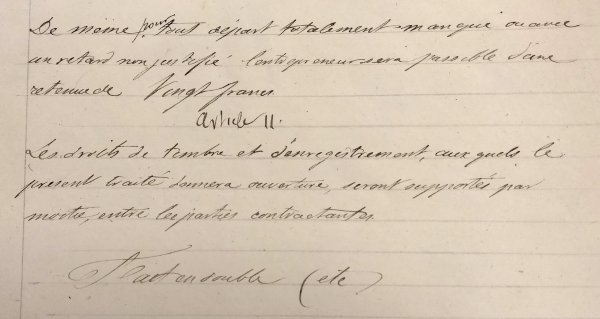 De même pour tout départ totalement manqué ou avec
un retard non justifié l'entrepreneur sera passible d'une
retenue de Vingt francs
Article 11.
Les droits de timbre et d'enregistrement, auxquels le
présent traité donnera ouverture, seront supportés par
moitié, entre les parties contractantes.
Fait en double (etc)